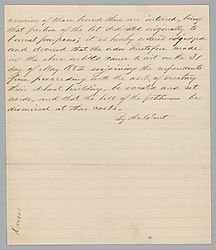 remains of those buried there are interred, being
that portion of the lot dedicated originally to
burial purposes; it is hereby ordered adjudged
and decreed that the order heretofore made
in the above entitled cause to wit on the 31
day of May 1882 enjoining the respondents
from proceeding with the work of erecting
their school building, be vacated and set
aside, and that the bill of the petitioners be
dismissed at their costs.
By the Court